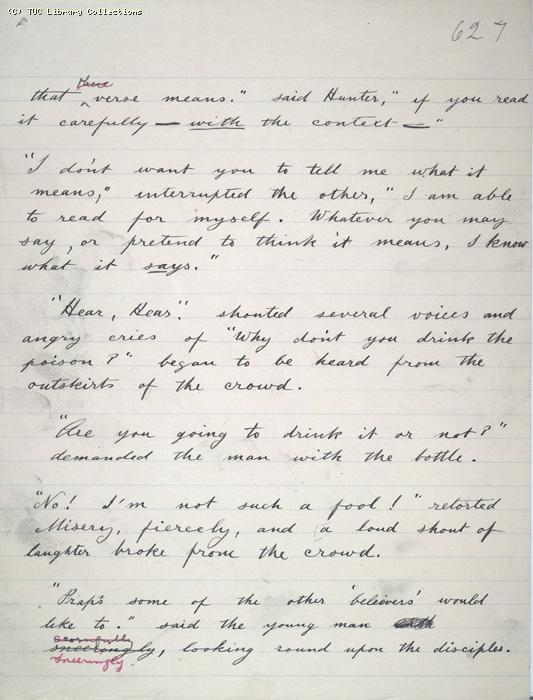 (C) TUC Library Collections
627
these
that verse means." said Hunter, "if you read
it carefully — with the context — "
"I don't want you to tell me what it
means," interrupted the other, "I am able
to read for myself. Whatever you may
say, or pretend to think it means, I know
what it says."
"Hear, Hear". shouted several voices and
angry cries of "Why don't you drink the
poison?" began to be heard from the
outskirts of the crowd.
"Are you going to drink it or not?"
demanded the man with the bottle.
"No! I'm not such a fool!" retorted
Misery, fiercely, and a loud shout of
laughter broke from the crowd.
"P'raps some of the other 'believers' would
like to." said the young man
scornfully
sneeringly, looking round upon the disciples.
sneeringly.